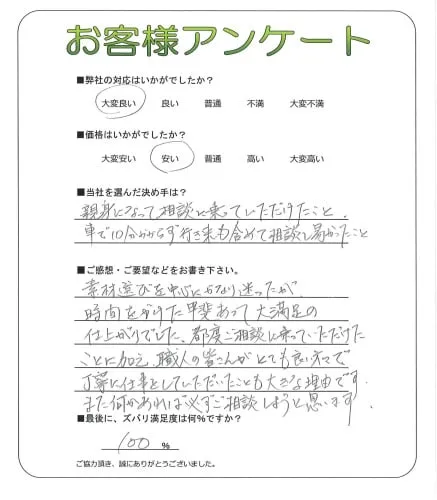 お客様アンケート
■弊社の対応はいかがでしたか?
大変良い 良い 普通 不満 大変不満
■価格はいかがでしたか?
大変安い 安い 普通 高い 大変高い
■当社を選んだ決め手は?
親身になって相談に乗っていただけたこと.
車で10分かからず行き来も含めて相談し易かったこと
■ご感想・ご要望などをお書き下さい。
素材選びを中心にかなり迷ったが
時間をかけた甲斐あって大満足の
仕上がりでした、都度ご相談に乗っていただけた
ことに加え、職人の皆さんがとても良い方々で
丁寧に仕事をしていただいたことも大きな理由です.
また何かあれば必ずご相談しようと思います.
■最後に、ズバリ満足度は何%ですか?
100 %
ご協力頂き、誠にありがとうございました。